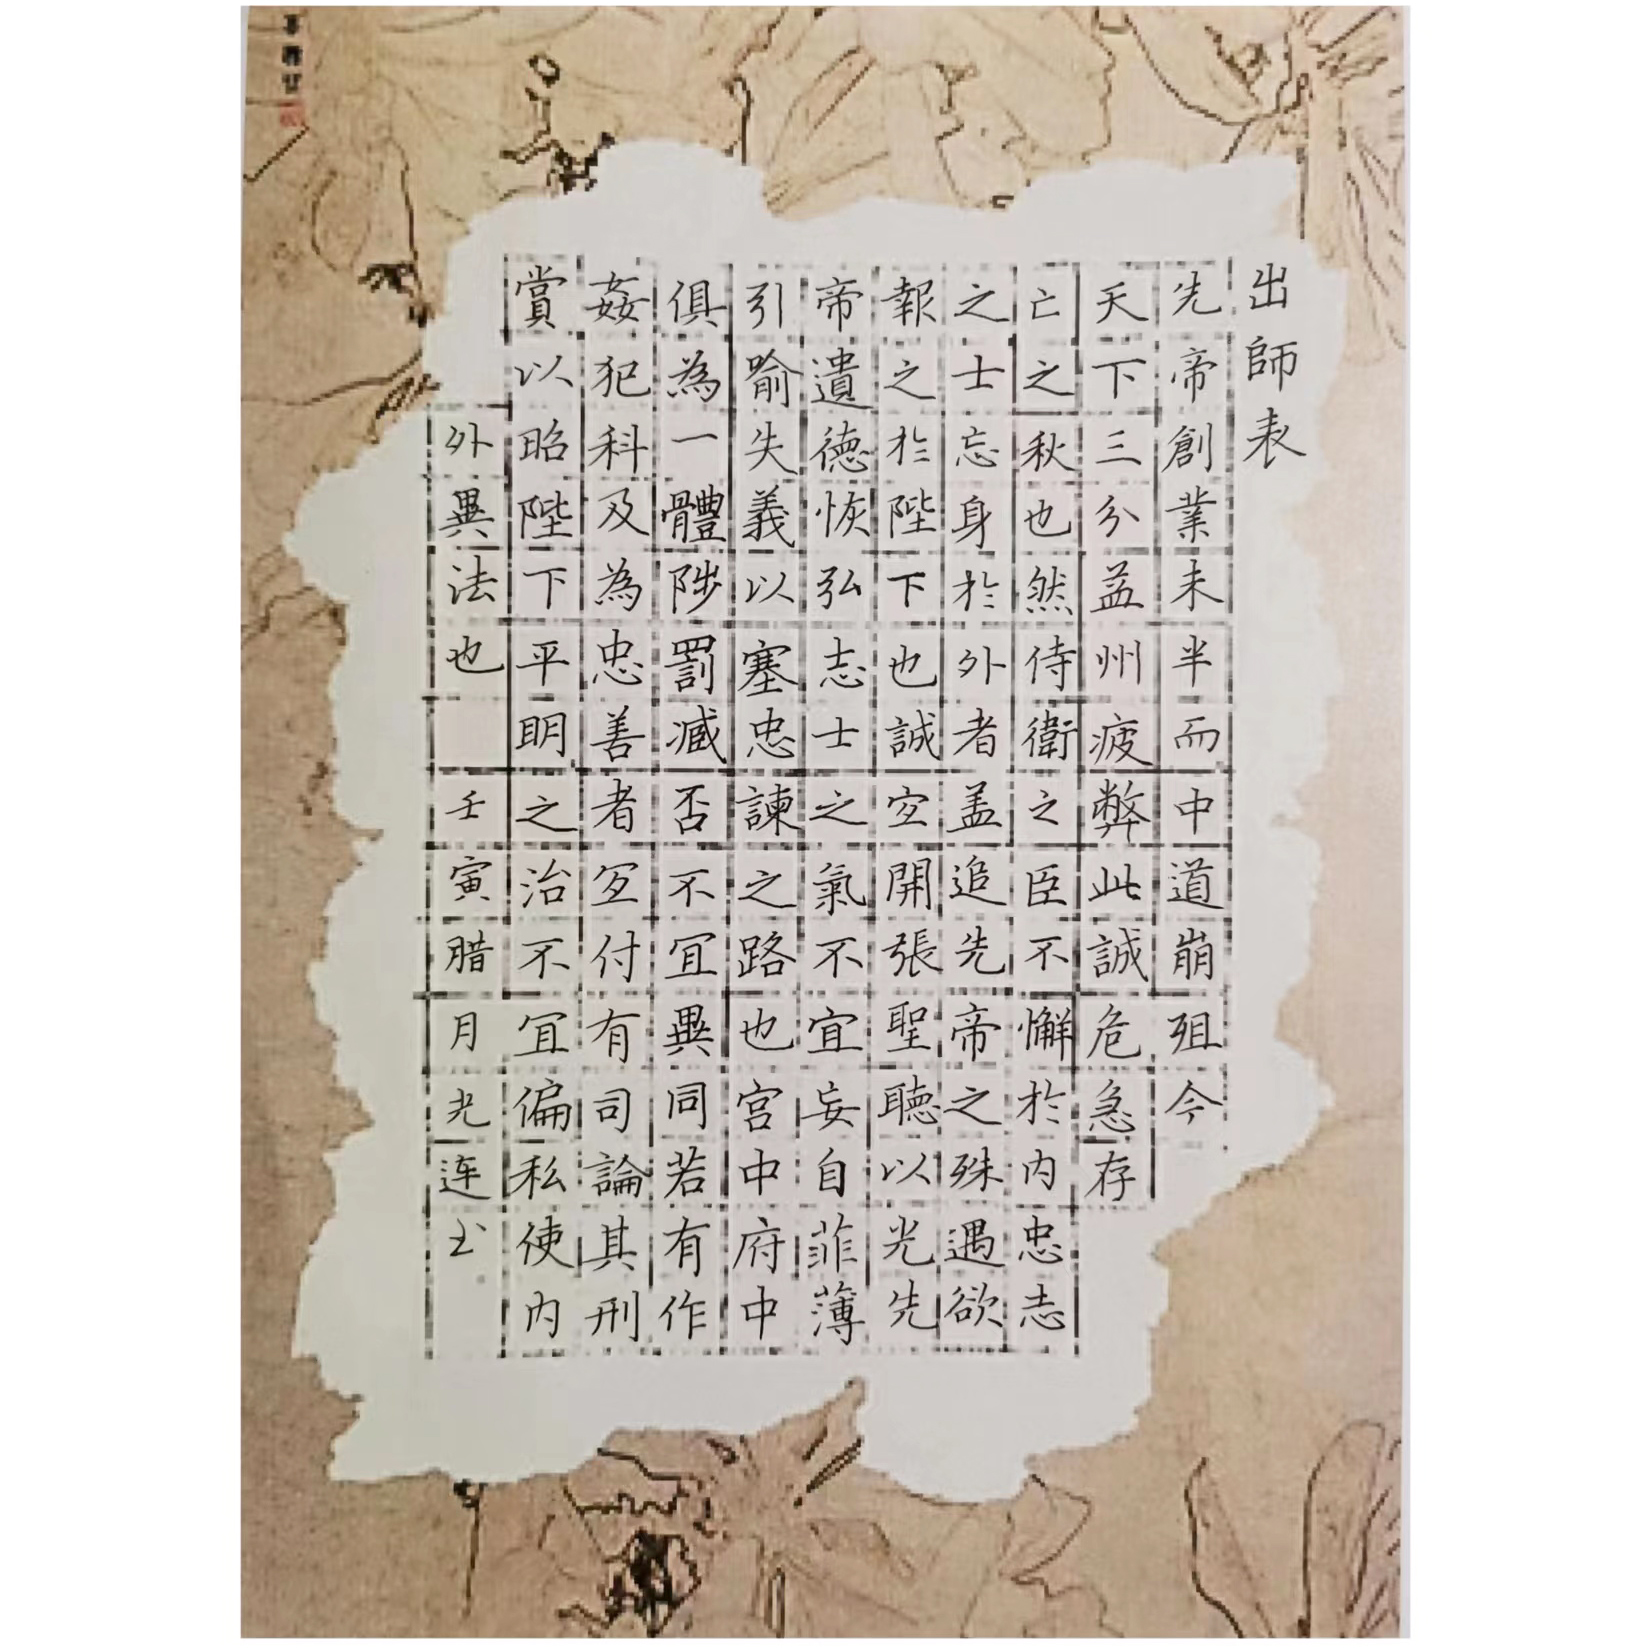 出師表
先帝創業未半而中道崩殂今
天下三分益州疲弊此誠危急存
亡之秋也然侍衛之臣不懈於内忠志
之士忘身於外者盖追先帝之殊遇欲
報之於陛下也誠宜開張聖聽以光先
帝遺德恢弘志士之氣不宜妄自菲薄
引喻失義以塞忠諫之路也宫中府中
俱為一體陟罰臧否不宜異同若有作
姦犯科及為忠善者宜付有司論其刑
賞以昭陛下平明之治不宜偏私使内
外異法也 壬寅腊月光连书